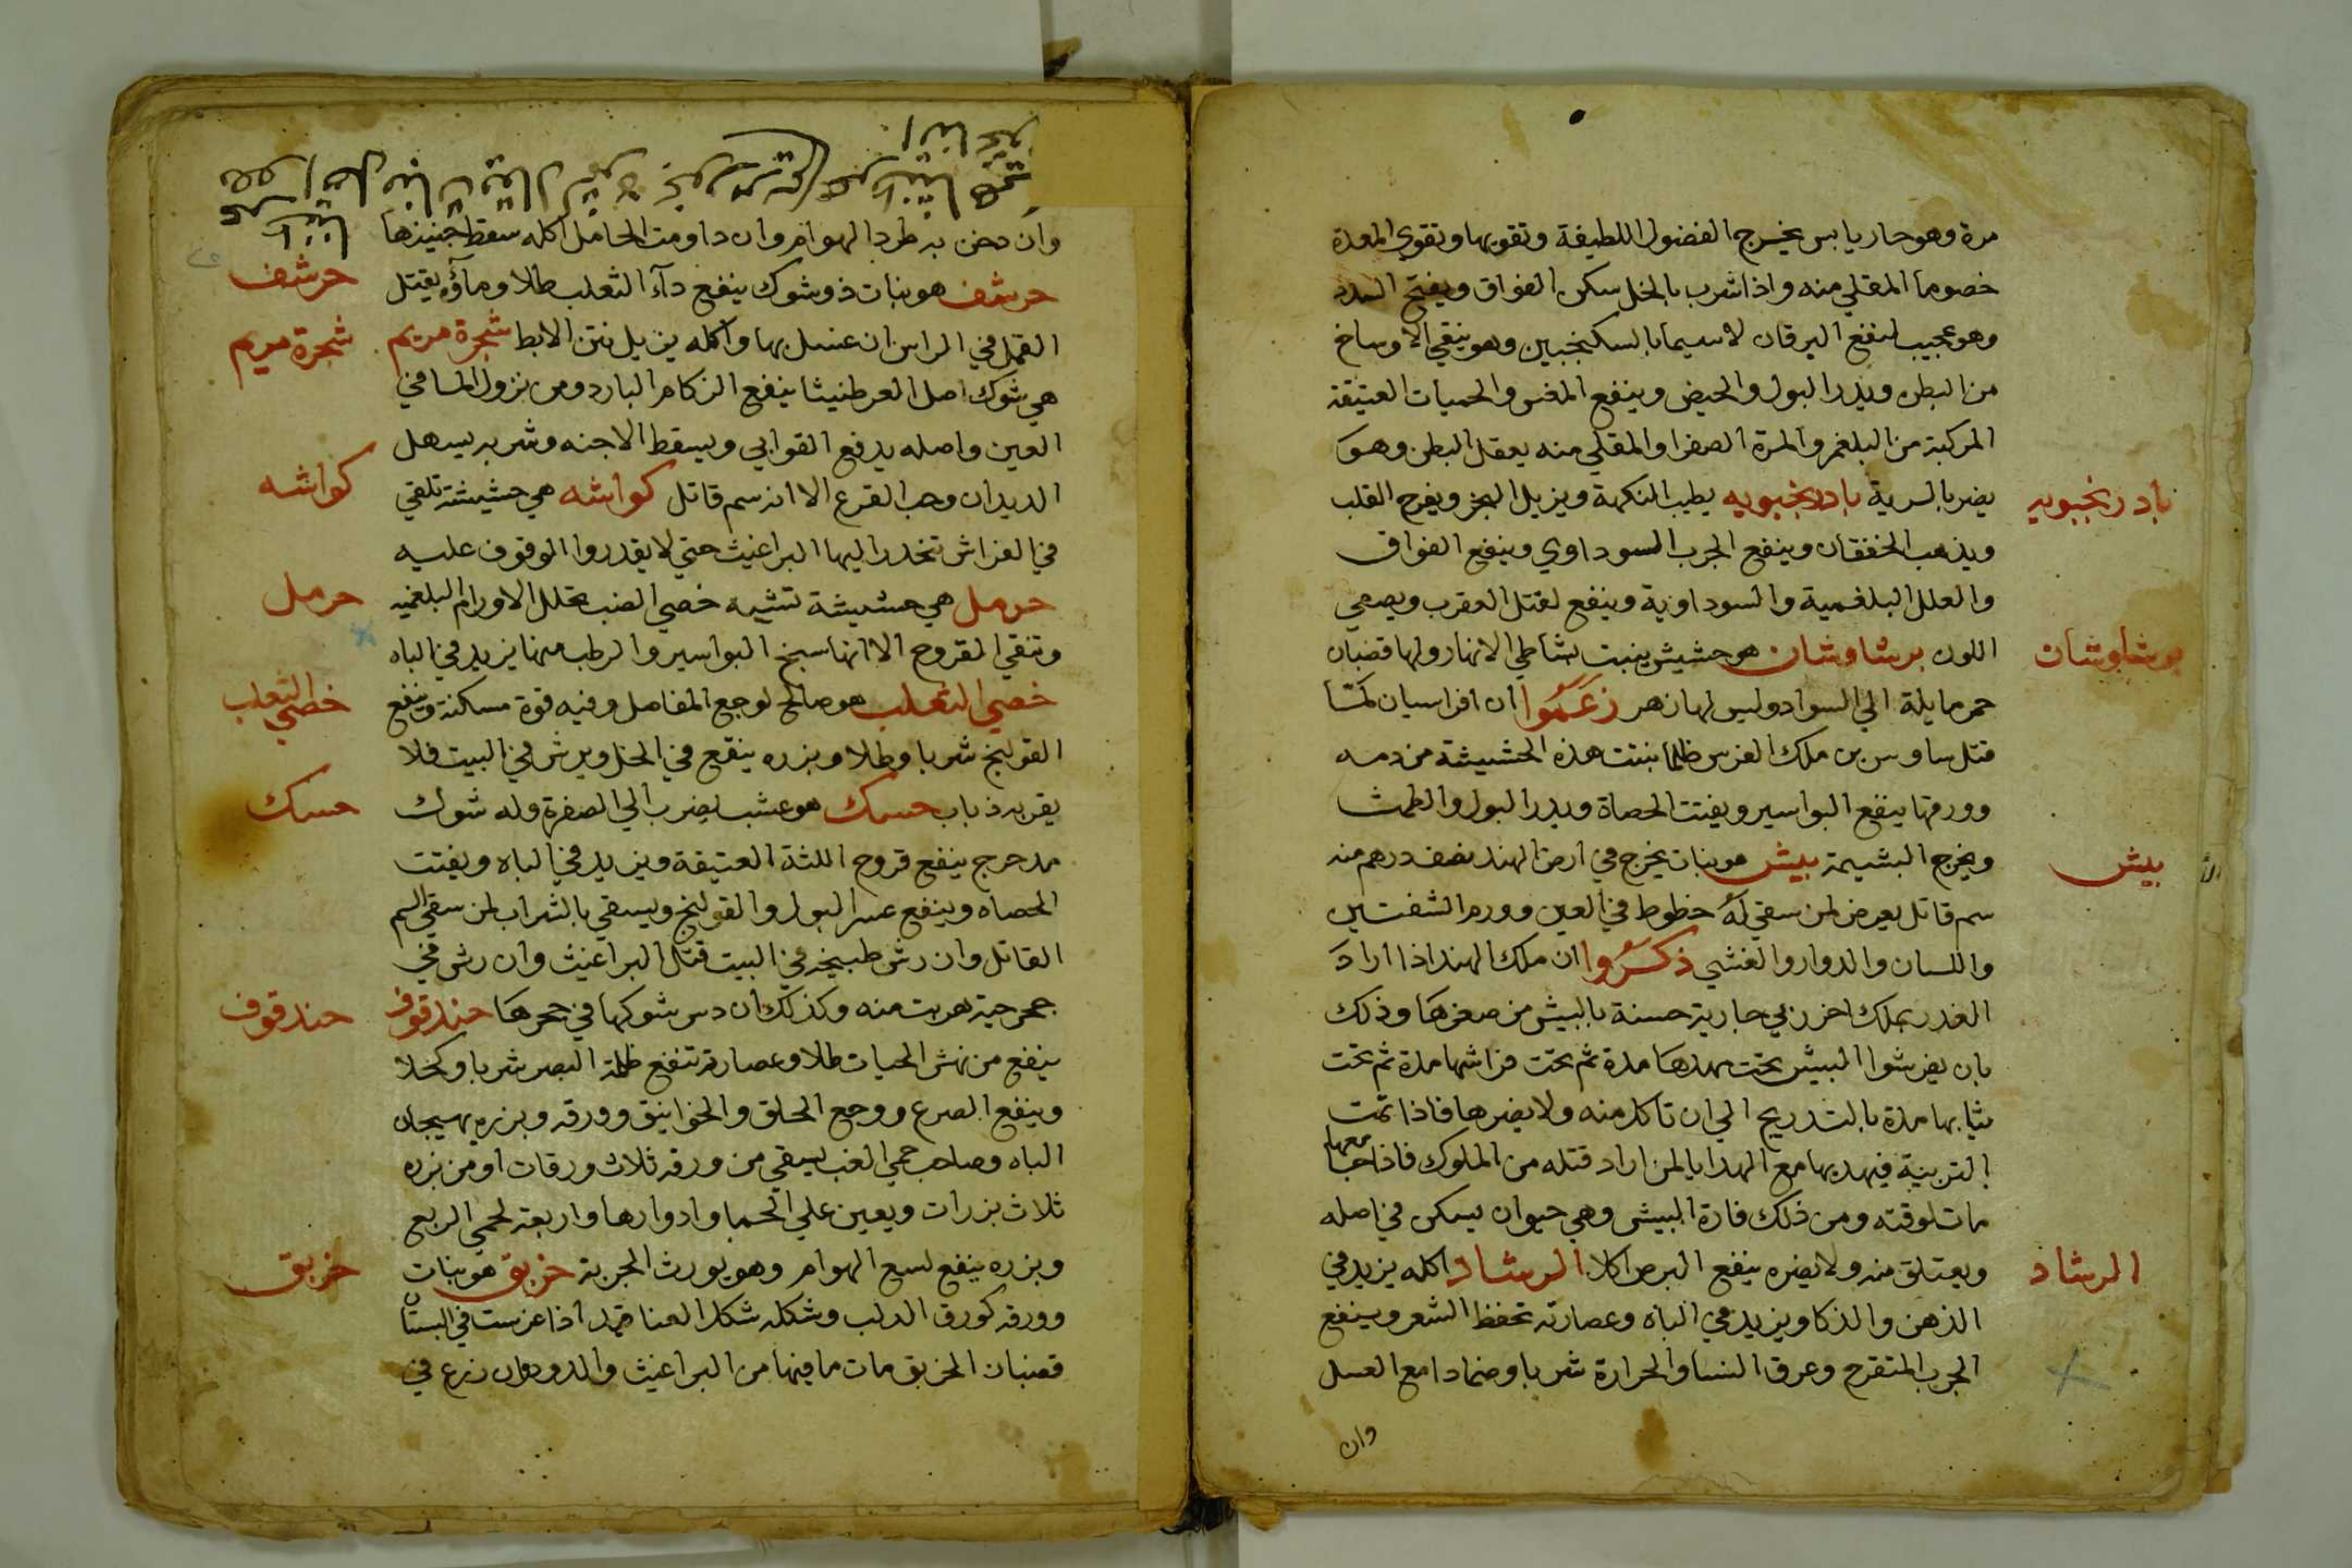 مرة وهو حار يابس يخرج الفضول اللطيفة وتقويها وتقوي المعدة
خصوصا المقلي منه واذا شرب بالخل سكن الفواق ويفتح السدد
وهو عجيب لنفع اليرقان لاسيما بالسكنجبين وهو ينقي الاوساخ
من البطن ويدر البول والحيض وينفع المغس والحميات العتيقة
المركبة من البلغم والمرة الصفرا والمقلي منه يعقل البطن وهو
يضر بالرية بادرنجبويه يطيب النكهة ويزيل البخر ويفرح القلب
بادرنجبويه
ويذهب الخفقان وينفع الجرب السوداوي وينفع الفواق
والعلل البلغمية والسوداوية وينفع لقتل العقرب ويصفي
اللون برشاوشان هو حشيش ينبت بشاطي الانهار ولها قضبان
برشاوشان
حمر مايلة الي السواد وليس لها زهر زعموا ان افراسيان لمّا
قتل ساوس بن ملك الفرس ظلما نبتت هذه الحشيشة من دمه
وورقها ينفع البواسير ويفتت الحصاة ويدر البول والطمث
ويخرج البشيمة بيش هو نبات يخرج في ارض الهند نصف درهم منه
بيش
سم قاتل يعرض لمن سقي له خطوط في العين وورم الشفتين
واللسان والدوار والغشي ذكروا ان ملك الهند اذا اراد
الغدر بملك اخر ربي جارية حسنة بالبيش من صغرها وذلك
بان يفرشوا البيش تحت مهدها مدة ثم تحت فراشها مدة ثم تحت
ثيابها مدة بالتدريج الي ان تاكل منه ولا يضرها فاذا تمت
التربية فيهديها مع الهدايا لمن اراد قتله من الملوك فاذا جامعها
مات لوقته ومن ذلك فارة البيش وهي حيوان يسكن في اصله
ويعتلق منه ولا يضره ينفع البرص اكلا الرشاد اكله يزيد في
الرشاد
الذهن والذكا ويزيد في الباه وعصارته تحفظ الشعر وينفع
الجرب المتقرح وعرق النسا والحرارة شربا وضمادا مع العسل
وان
وان دخن به طرد الهوام وان داومت الحامل اكله سقط جنينها
حرشف هو نبات ذو شوك ينفع دآء الثعلب طلا وماؤه يقتل
حرشف
القمل في الراس ان غسل بها واكله يزيل نتن الابط شجرة مريم
شجرة مريم
هي شوك اصل العرطنيثا ينفع الزكام البارد ومن نزول الما في
العين واصله يدفع القوابي ويسقط الاجنه وشربه يسهل
الديدان وحب القرع الا انه سم قاتل كواشه هي حشيشة تلقي
كواشه
في الفراش تخدر اليها البراغيث حتي لا يقدروا الوقوف عليه
حرمل هي حشيشة تشبه خصي الضب تحلل الاورام البلغميه
حرمل
وتنقي القروح الا انها سبخ البواسير والرطب منها يزيد في الباه
خصي الثعلب هو صالح لوجع المفاصل وفيه قوة مسكنة وينفع
خصي الثعلب
القولنج شربا وطلا وبزره ينقع في الخل ويرش في البيت فلا
يقربه ذباب حسك هو عشب يضرب الي الصفرة وله شوك
حسك
مدحرج ينفع قروح اللثة العتيقة ويزيد في الباه ويفتت
الحصاه وينفع عسر البول والقولنج ويسقي بالشراب لمن سقي السم
القاتل وان رش طبيخه في البيت قتل البراغيث وان رش في
جحر حية هربت منه وكذلك ان دس شوكها في جحرها حندقوف
حندقوف
ينفع من نهش الحيات طلا وعصارته تنفع ظلمة البصر شربا وكحلا
وينفع الصرع ووجع الحلق والخوانيق وورقه وبزره يهيجان
الباه وصاحب حمي الغب يسقي من ورقه ثلاث ورقات او من بزره
ثلاث بزرات ويعين علي الحما وادوارها واربعة لحمي الربع
وبزره ينفع لسع الهوام وهو يورث الجربة خربق هو نبات
خربق
وورقه كورق الدلب وشكله شكل العنا اذا غرست في البستان
قضبان الخربق مات ما فيها من البراغيث والدود وان زرع في